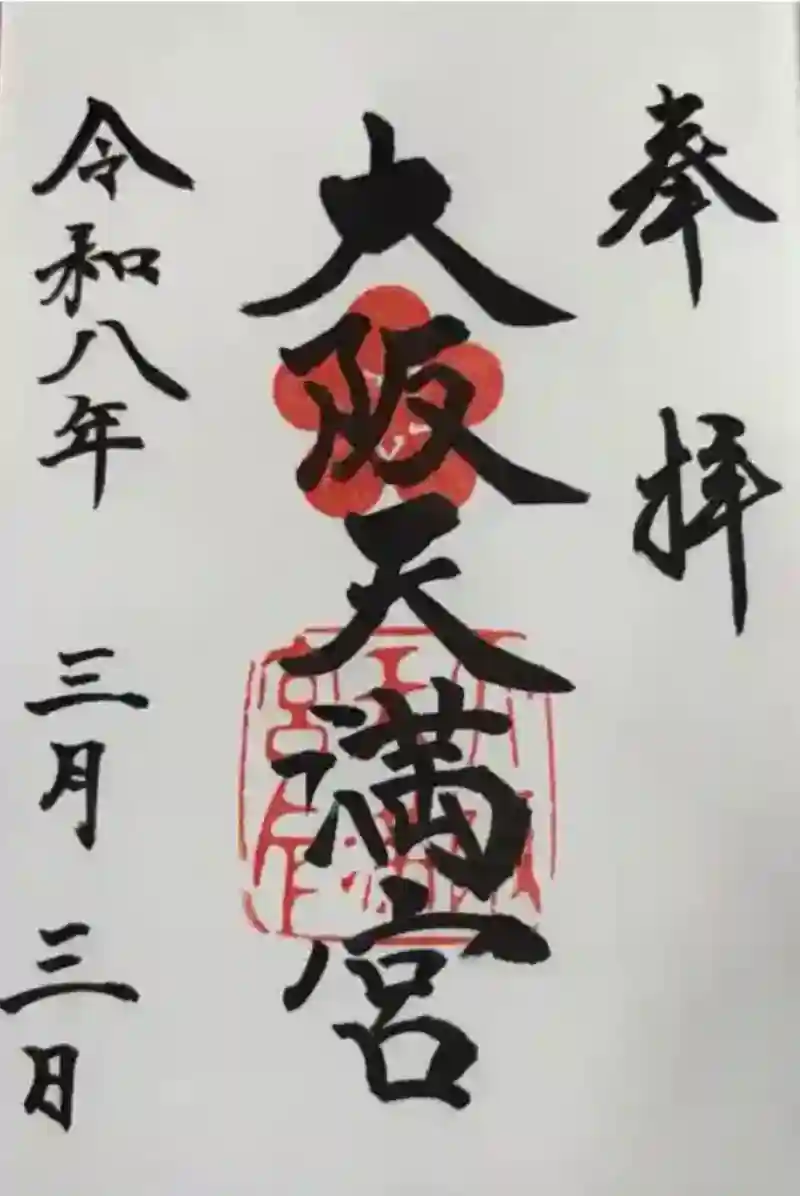 奉拝
大阪天満宮
令和八年 三月 三日